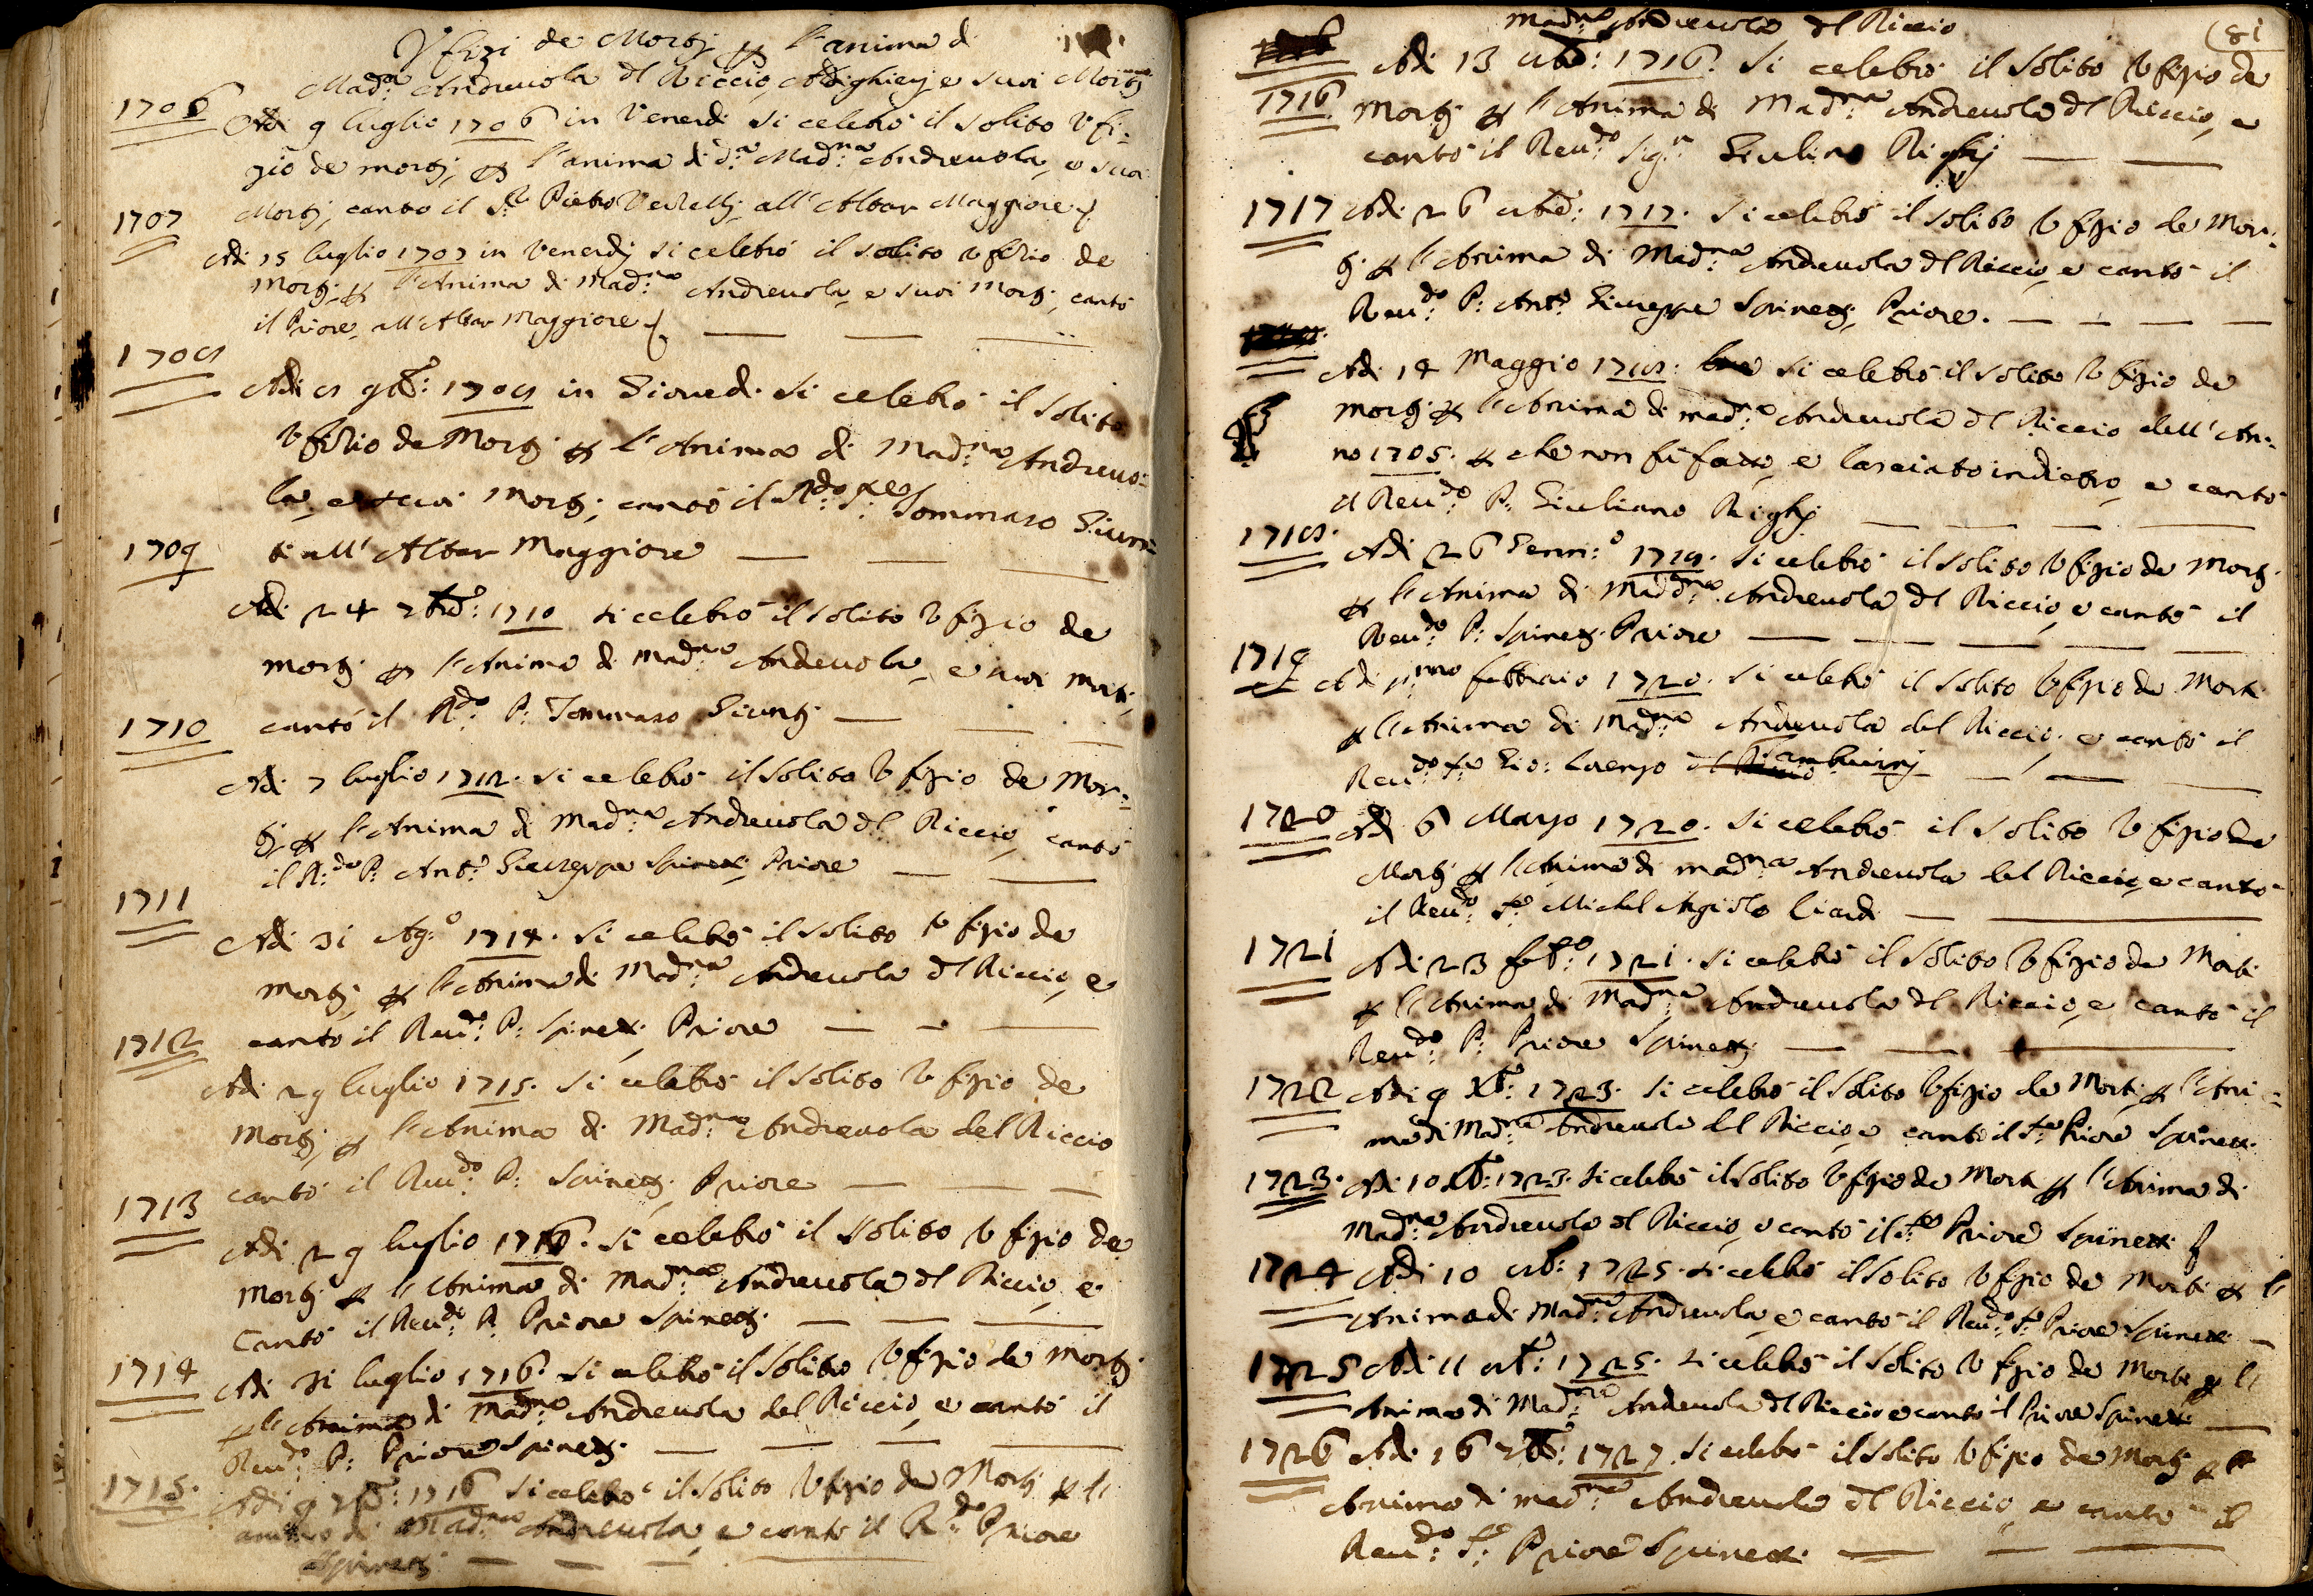 Vfizi de Mortj p l'anima di
Mad.a Andreuola dl Riccio, Aldighierj e suoi Mortj
1706
Adi 9 luglio 1706 in Venerdi si celebrò il solito Vfi-
zio de mortj, p l'anima di d.a Mad.na Andreuola, e suoi
Mortj, cantò il Pietro all'Altar Maggiore
1707
Adi 15 luglio 1707 in Venerdj si celebrò il solito Vfizio de
Mortj p l'Anima di Mad.na Andreuola, e suoi Mortj, cantò
il Priore, all'Altar Maggiore
1708
Adi 8 9bre: 1708 in Giouedi si celebrò il solito
Vfizio de Mortj p l'Anima di Mad.na Andreuo-
la, e suoi Mortj; cantò il R.do Tommaso Giun-
ti all'Altar Maggiore
1709
Adi 24 7bre: 1710 si celebrò il solito Vfizio de
mortj p l'Anima di Mad.na Andreuola, e suoi Morti,
cantò il R.do P: Tommaso Giuntj
1710
Adi 7 luglio 1712. si celebrò il solito Vfizio de Mor-
tj p l'Anima di Mad.na Andreuola dl Riccio, cantò
il R.do P: Ant.o Giuseppe Spinetti, Priore
1711
Adi 31 Ag.o 1714. si celebrò il solito Vfizio de
mortj p l'Anima di Mad.na Andreuola dl Riccio, e
cantò il Reu.do P: Spinetti Priore
1712
Adi 29 luglio 1715. si celebrò il solito Vfizio de
Mortj p l'Anima di Mad.na Andreuola del Riccio
cantò il Reu.do P: Spinettj, Priore
1713
Adi 29 luglio 1716. si celebrò il solito Vfizio de
Mortj p l'Anima di Mad.na Andreuola dl Riccio, e
Cantò il Reu.do P. Priore Spinettj
1714
Adi 31 luglio 1716. si celebrò il solito Vfizio de Mortj
p l'Anima di Mad.na Andreuola del Riccio, e cantò il
Reu.do P: Priore Spinettj
1715.
Adi 9 7bre: 1716 si celebrò il solito Vfizio de Mortj p l'
anima di Mad.na Andreuola, e cantò il R.do Priore
Spinettj
Mad.na Andreuola dl Riccio
81
1716
Adi 13 8bre: 1716. si celebrò il solito Vfizio de
Mortj p l'Anima di Mad.na Andreuola dl Riccio, e
cantò il Reu.do Sig.r Giuliano Righj
1717
Adi 26 8bre: 1717. si celebrò il solito Vfizio de Mor-
tj p l'Anima di Mad.na Andreuola dl Riccio, e cantò il
Reu.do P: Ant.o Giuseppe Spinettj, Priore.
Adi 14 Maggio 1718: si celebrò il solito Vfizio de
mortj p l'Anima di mad.na Andreuola dl Riccio dell'An-
no 1705. p che non fu fatto, e lasciato indietro, e cantò
il Reu.do P: Giuliano Righj
1718.
Adi 26 Genn.o 1719. si celebrò il solito Vfizio de Mortj
p l'Anima di Mad.na Andreuola dl Riccio, e cantò il
Reu.do P: Spinettj Priore
1719
Adi p.mo febbraio 1720. si celebrò il solito Vfizio de Morti
p l'Anima di Mad.na Andreuola del Riccio, e cantò il
Reu.do Gio: Lorenzo
1720
Adi 6 Marzo 1720. si celebrò il solito Vfizio de
Mortj p l'Anima di mad.na Andreuola del Riccio, e cantò
il Reu.do Michel Agiolo
1721
Adi 23 feb.o 1721. si celebrò il solito Vfizio de Morti
p l'Anima di Mad.na Andreuola dl Riccio, e cantò il
Reu.do P: Priore Spinettj
1722
Adi 9 Xbre: 1723. si celebrò il solito Vfizio de Morti p l'Ani-
ma di Mad.na Andreuola del Riccio, e cantò il Priore Spinetti.
1723.
Adi 10 Xbre: 1723. si celebrò il solito Vfizio de Morti p l'Anima di
Mad.na Andreuola dl Riccio, e cantò il Priore Spinetti
1724
Adi 10 8bre: 1725. si celebrò il solito Vfizio de Morti p l'
Anima di Mad.na Andreuola, e cantò il Reu.do Priore Spinetti
1725
Adi 11 8bre: 1725. si celebrò il solito Vfizio de Morti p l'
Anima di Mad.na Andreuola dl Riccio e cantò il Priore Spinetti
1726
Adi 16 7bre: 1727. si celebrò il solito Vfizio de Mortj p l'
Anima di mad.na Andreuola dl Riccio, e cantò il
Reu.do Priore Spinetti.